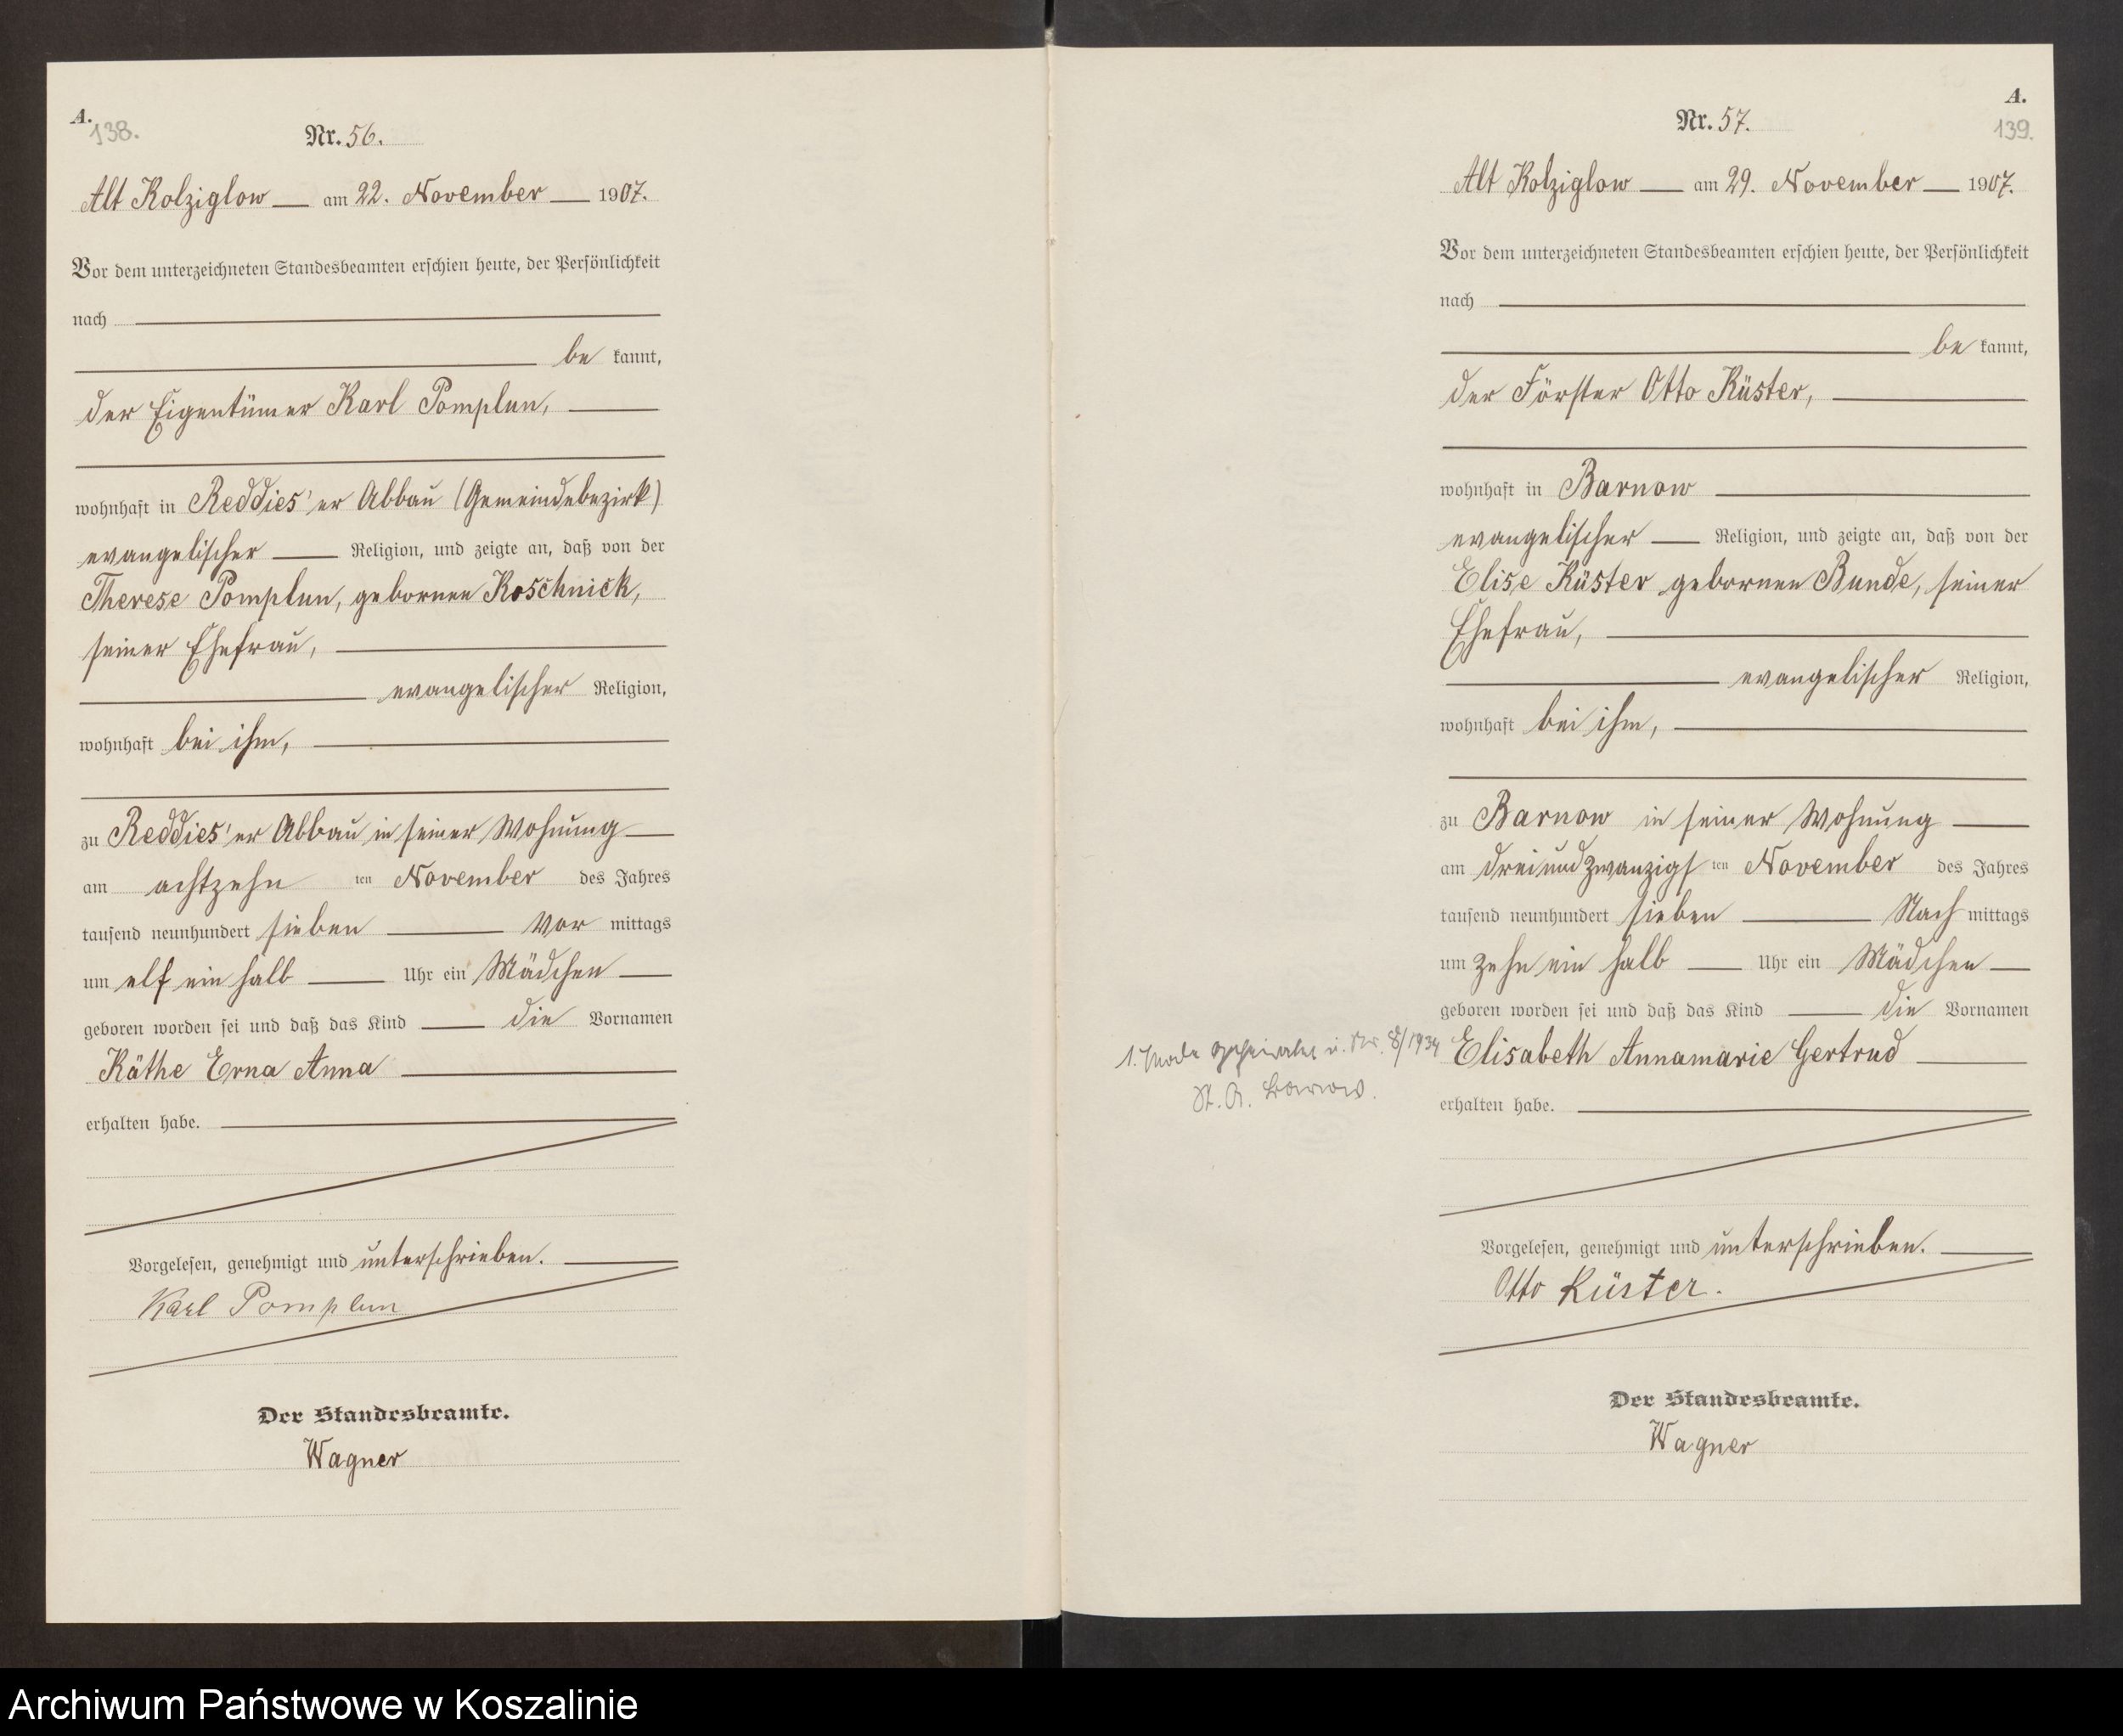 A.
138.
Nr. 56.
Alt Kolziglow am 22. November 1907.
Vor dem unterzeichneten Standesbeamten erschien heute, der Persönlichkeit
nach
be kannt,
der Eigentümer Karl Pomplun,
wohnhaft in Reddies'er Abbau (Gemeindebezirk)
evangelischer Religion, und zeigte an, daß von der
Therese Pomplun, gebornen Koschnick,
seiner Ehefrau,
evangelischer Religion,
wohnhaft bei ihm,
zu Reddies'er Abbau in seiner Wohnung
am achtzehn ten November des Jahres
tausend neunhundert sieben Vor mittags
um elf ein halb Uhr ein Mädchen
geboren worden sei und daß das Kind die Vornamen
Käthe Erna Anna
erhalten habe.
Vorgelesen, genehmigt und unterschrieben.
Karl Pomplun
Der Standesbeamte.
Wagner
A.
139.
Nr. 57.
Alt Kolziglow am 29. November 1907.
Vor dem unterzeichneten Standesbeamten erschien heute, der Persönlichkeit
nach
be kannt,
der Förster Otto Küster,
wohnhaft in Barnow
evangelischer Religion, und zeigte an, daß von der
Elise Küster gebornen Bunde, seiner
Ehefrau,
evangelischer Religion,
wohnhaft bei ihm,
zu Barnow in seiner Wohnung
am dreiundzwanzigs ten November des Jahres
tausend neunhundert sieben Nach mittags
um zehn ein halb Uhr ein Mädchen
geboren worden sei und daß das Kind die Vornamen
Elisabeth Annamarie Gertrud
erhalten habe.
1. Nr. 8/1934
St. A. Barnow.
Vorgelesen, genehmigt und unterschrieben.
Otto Küster.
Der Standesbeamte.
Wagner
Archiwum Państwowe w Koszalinie